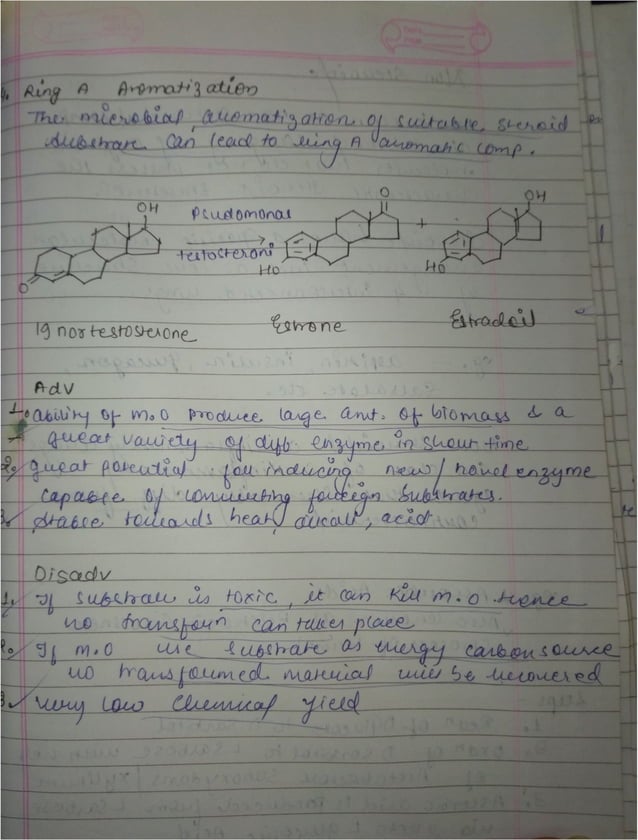 4. Ring A Aromatization
The microbial aromatization of suitable steroid
substrate can lead to ring A aromatic comp.
OH
O
OH
Psudomonas
testosteroni
+
O
HO
HO
19 nortestosterone
Estrone
Estradoil
Adv
1. ability of m.o produce large amt. of biomass & a
great variety of diff. enzyme in short time
2. great potential for inducing new/novel enzyme
capable of converting foreign substrates.
3. Stable towards heat, alkali, acid
Disadv
1. If substrate is toxic, it can kill m.o hence
no transform can takes place
2. If m.o use substrate as energy carbon source
no transformed material will be recovered
3. very low chemical yield